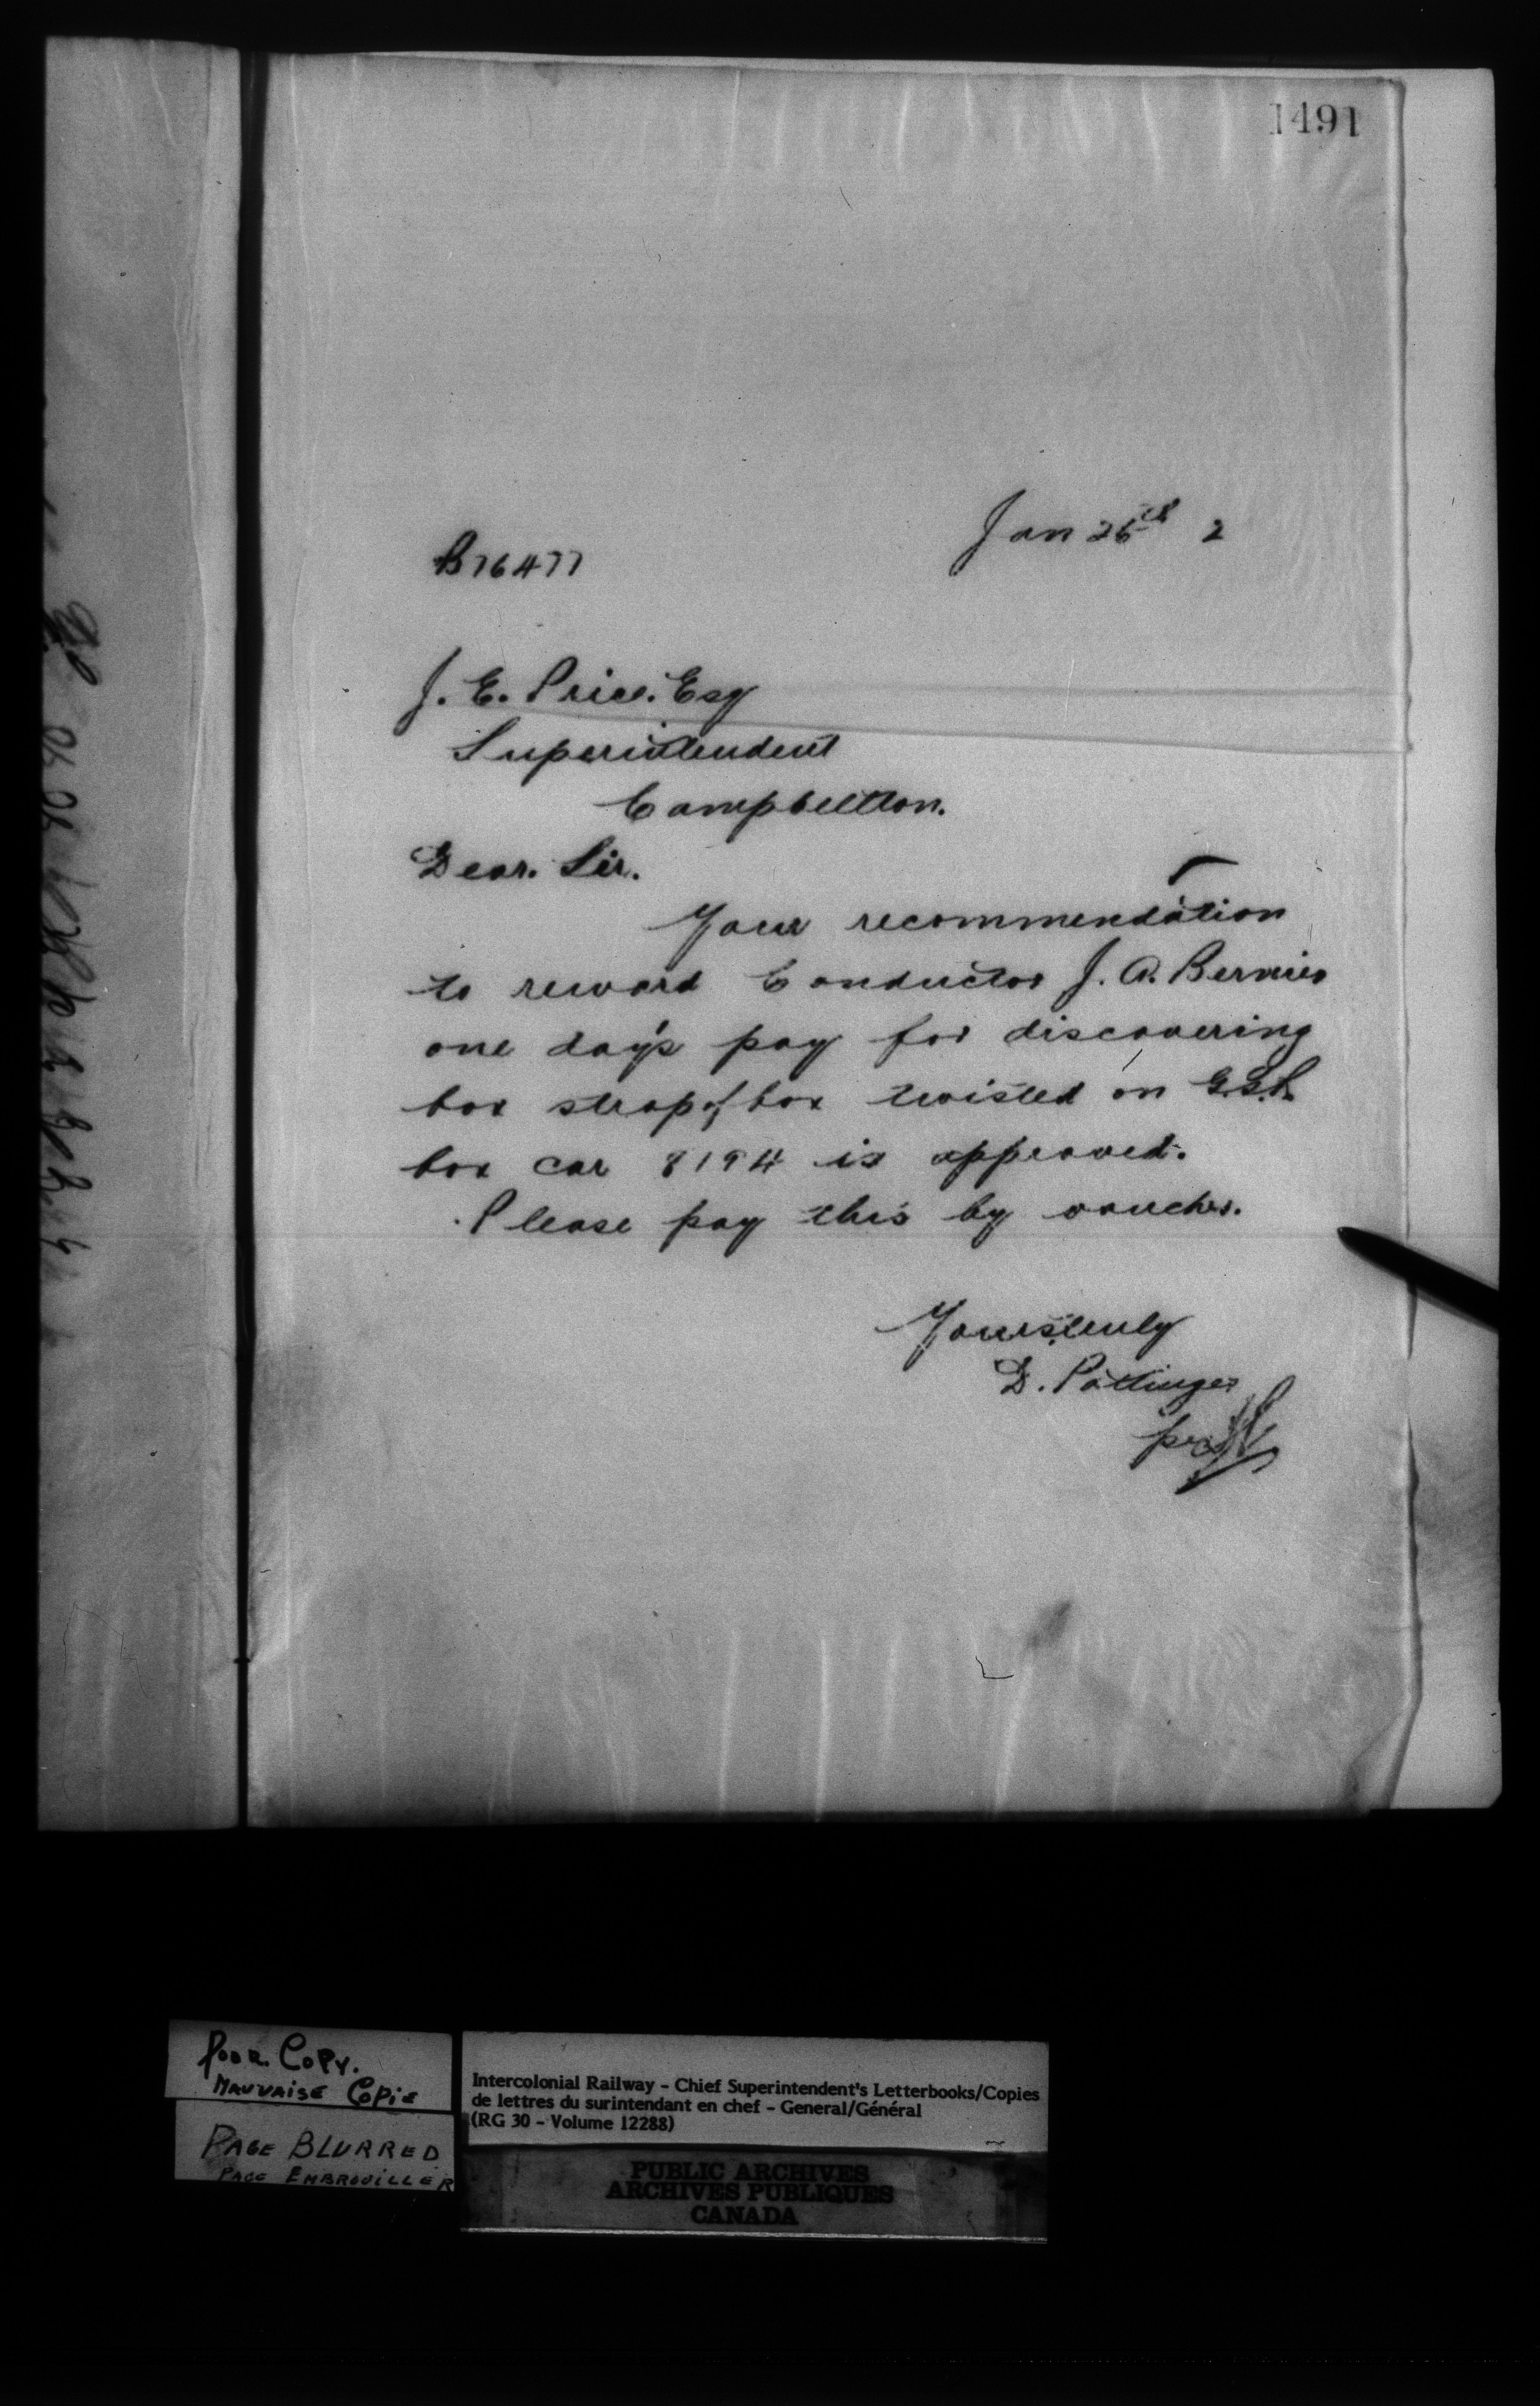 1491
Jan 25th 2
B76477
J. E. Price. Esq
Superintendent
Campbellton.
Dear. Sir.
Your recommendation
to reward Conductor J. A. Bernier
one day's pay for discovering
box strap of box twisted on
box car 8194 is approved.
Please pay this by voucher.
Yours truly
D. Pottinger
per
Poor. Copy.
Mauvaise Copie
PAGE BLURRED
PAGE EMBROUILLER
Intercolonial Railway - Chief Superintendent's Letterbooks/Copies
de lettres du surintendant en chef - General/Général
(RG 30 - Volume 12288)
PUBLIC ARCHIVES
ARCHIVES PUBLIQUES
CANADA